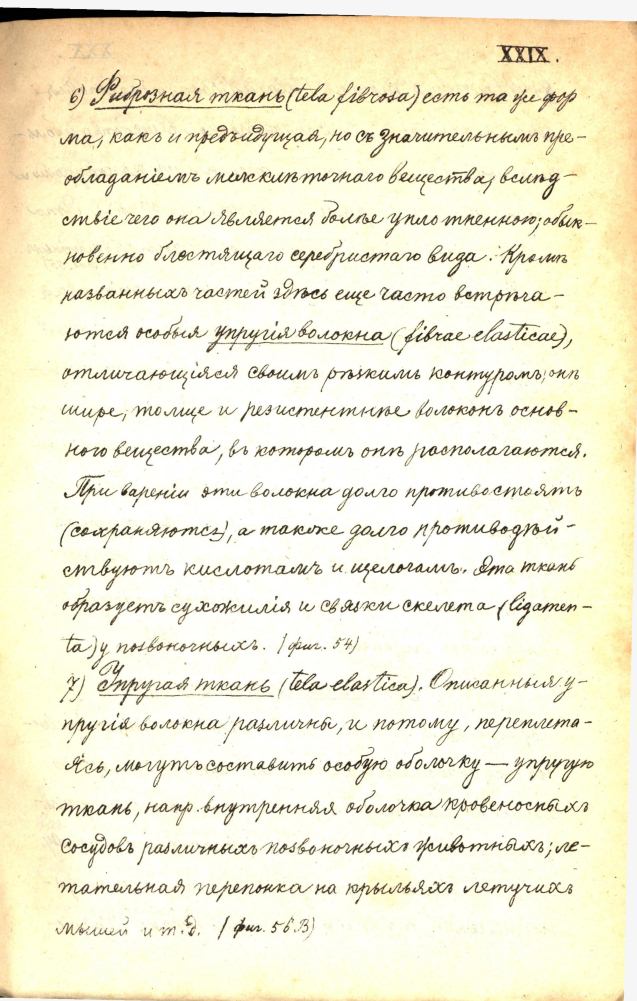 XXIX.
6) Фиброзная ткань (tela fibrosa) есть та же фор
ма, какъ и предъидущая, но съ значительнымъ пре-
обладаніемъ межклѣточнаго вещества, вслѣд-
ствіе чего она является болѣе уплотненною; обык-
новенно блестящаго серебристаго вида. Кромѣ
названныхъ частей здѣсь еще часто встрѣча-
ются особыя упругія волокна (fibrae elasticae),
отличающіяся своимъ рѣзкимъ контуромъ; онѣ
шире, толще и резистентнѣе волоконъ основ-
ного вещества, въ которомъ онѣ располагаются.
При вареніи эти волокна долго противостоятъ
(сохраняются), а также долго противодѣй-
ствуютъ кислотамъ и щелочамъ. Эта ткань
образуетъ сухожилія и связки скелета (ligamen-
ta) у позвоночныхъ. (фиг. 54)
7) Упругая ткань (tela elastica). Описанныя у-
пругія волокна различны, и потому, переплета-
ясь, могутъ составить особую оболочку — упругую
ткань, напр. внутренняя оболочка кровеносныхъ
сосудовъ различныхъ позвоночныхъ животныхъ; ле-
тательная перепонка на крыльяхъ летучихъ
мышей и т.д. (фиг. 56 B)